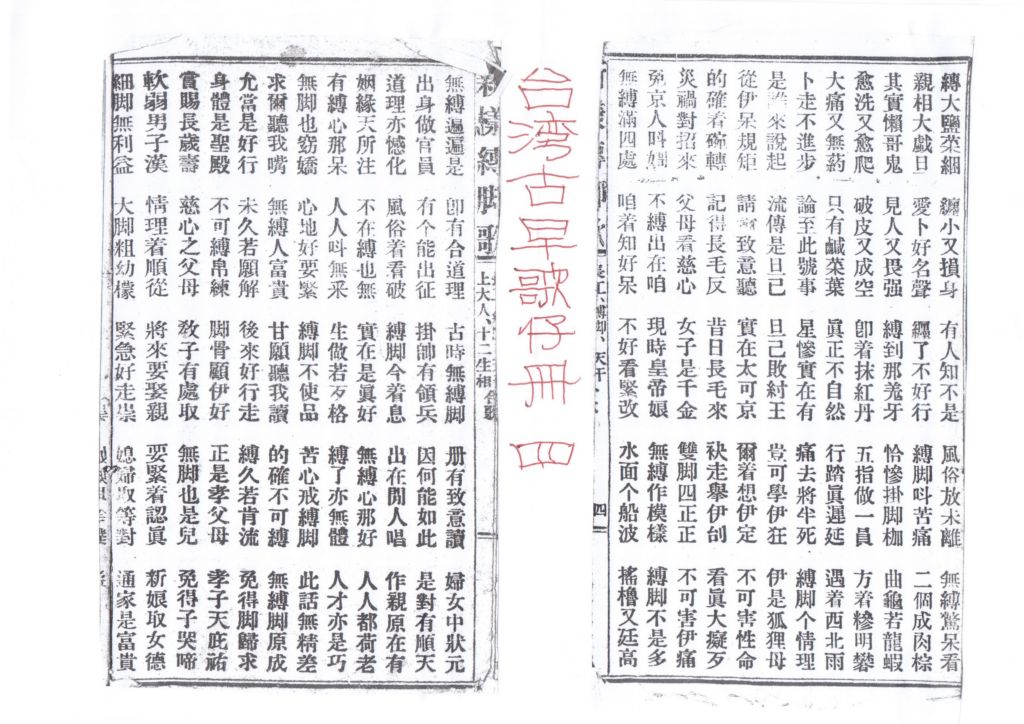 縛大鹽菜綑 纏小又損身 有人知不是 風俗放未離 無縛驚呆看
親相大戲旦 愛卜好名聲 纏了不好行 縛脚呌苦痛 二個成肉棕
其實懶哥鬼 見人又畏强 縛到那羗牙 恰慘掛脚枷 曲龜若龍蝦
愈洗又愈爬 破皮又成空 卽着抹紅丹 五指做一員 方着糝明礬
大痛又無葯 只有鹹菜葉 眞正不自然 行踏眞遲延 遇着西北雨
卜走不進步 論至此號事 星慘實在有 痛去將半死 縛脚个情理
是誰來說起 流傳是旦己 旦己敗紂王 豈可學伊狂 伊是狐狸母
從伊呆規矩 請爾致意聽 實在太可京 爾着想伊定 不可害性命
的確着碗轉 記得長毛反 昔日長毛來 袂走舉伊刣 看眞大癡歹
災禍對招來 父母看慈心 女子是千金 雙脚四正正 不可害伊痛
免京人呌 不縛出在咱 現時皇帝娘 無縛作模樣 縛脚不是多
無縛滿四處 咱着知好呆 不好看緊改 水面个船波 搖櫓又廷高
長江、縛脚、天干 四
台湾古早歌仔冊 四
新樣縛脚歌 上大人、十二生相合歌
無縛遍遍是 卽有合道理 古時無縛脚 册有致意讀 婦女中狀元
出身做官員 有个能出征 掛帥有領兵 因何能如此 是對有順天
道理亦憾化 風俗着看破 縛脚今着息 出在閒人唱 作親原在有
姻緣天所注 不在縛也無 實在是眞好 無縛心那好 人人都荷老
有縛心那呆 人人呌無采 生做若歹格 縛了亦無體 人才亦是巧
無脚也窈嬌 心地好要緊 縛脚不使品 苦心戒縛脚 此話無精差
求爾聽我嘴 無縛人富貴 甘願聽我讀 的確不可縛 無縛脚原成
允當是好行 未久若願解 後來好行走 縛久若肯流 免得脚歸求
身體是聖殿 不可縛帛練 脚骨顧伊好 正是孝父母 孝子天庇祐
賞賜長歲壽 慈心之父母 敎子有處取 無脚也是兒 免得子哭啼
軟弱男子漢 情理着順從 將來要娶親 要緊着認眞 新娘取女德
細脚無利益 大脚粗幼檬 緊急好走祟 媳婦取等對 通家是富貴